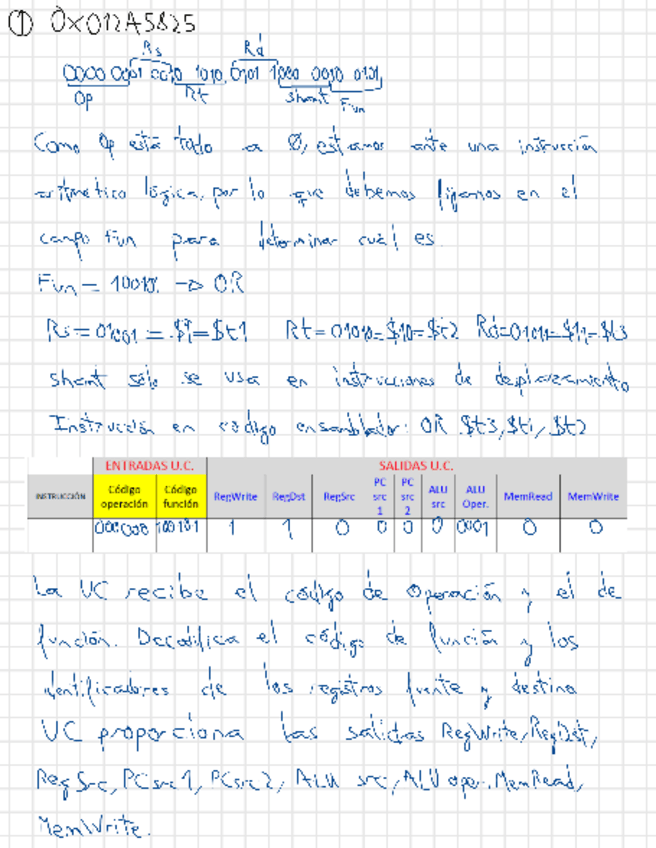 ① 0x012A5825
Rs Rd
0000 0001 0010 1010 0101 1000 0010 0101
Op Rt Shamt Fun
Como Op está todo a 0, estamos ante una instrucción
aritmético lógica, por lo que debemos fijarnos en el
campo Fun para determinar cuál es
Fun = 100101 → OR
Rs=01001=$9=$t1 Rt=01010=$10=$t2 Rd=01011=$11=$t3
shamt sólo se usa en instrucciones de desplazamiento
Instrucción en código ensamblador: OR $t3,$t1,$t2
ENTRADAS U.C. SALIDAS U.C.
INSTRUCCIÓN Código operación Código función RegWrite RegDst RegSrc PC src 1 PC src 2 ALU src ALU Oper. MemRead MemWrite
000000 100101 1 1 0 0 0 0 0001 0 0
La UC recibe el código de Operación y el de
función. Decodifica el código de función y los
identificadores de los registros fuente y destino
UC proporciona las salidas RegWrite, RegDst,
RegSrc, PCsrc1, PCsrc2, ALU src, ALU oper. MemRead,
MemWrite.